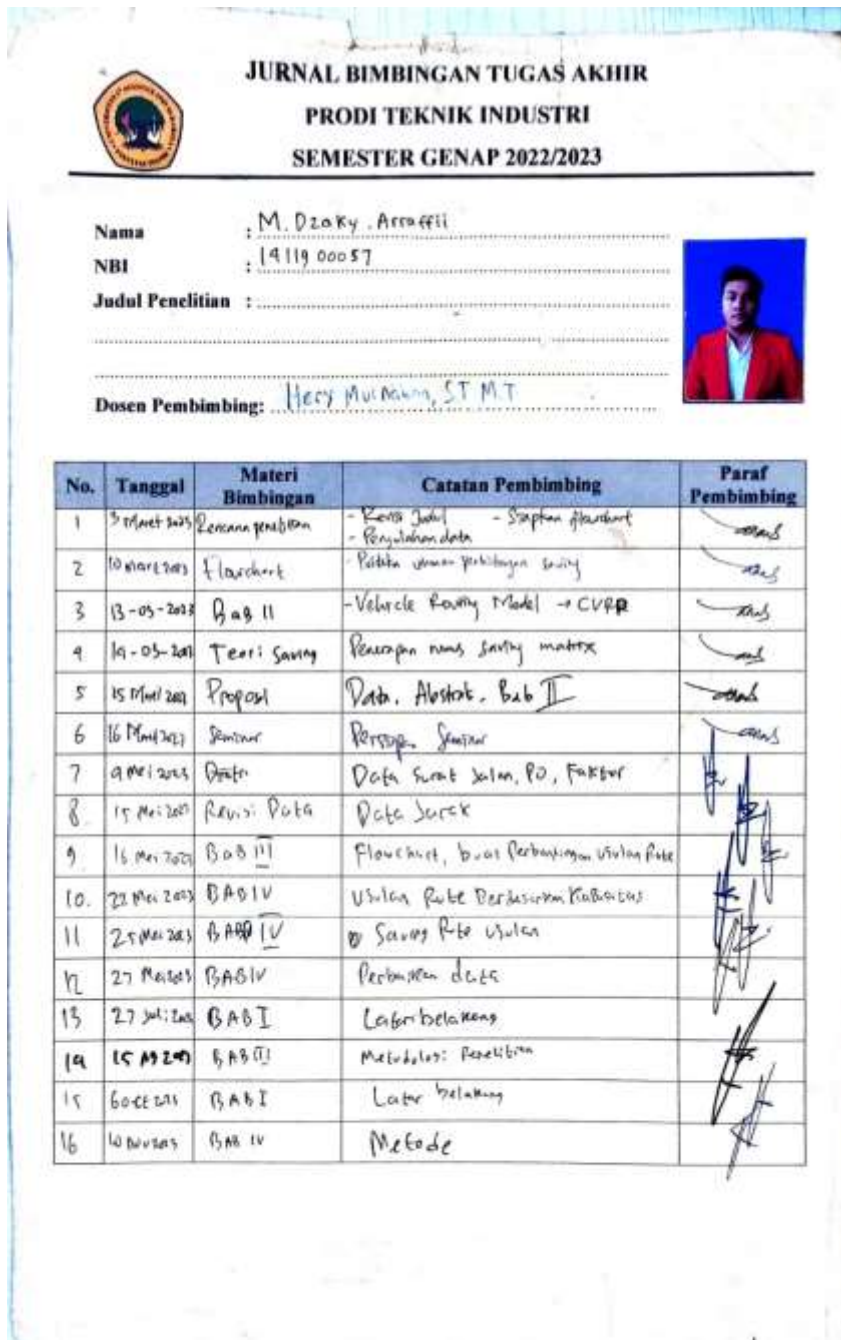 JURNAL BIMBINGAN TUGAS AKHIR
PRODI TEKNIK INDUSTRI
SEMESTER GENAP 2022/2023
Nama : M. Dzaky . Arraffii
NBI : 1411900057
Judul Penelitian :
Dosen Pembimbing: Hery Murnawan, ST M.T
No. Tanggal Materi Bimbingan Catatan Pembimbing Paraf Pembimbing
1 3 Maret 2023 Rencana penelitian - Revisi Judul - Siapkan flowchart
- Pengolahan data
2 10 Maret 2023 flowchart perhitungan saving
3 13-03-2023 Bab II -Vehicle Routing Model → CVRP
4 14-03-2023 Teori Saving Penerapan rumus saving matrix
5 15 Maret 2023 Proposal Data, Abstrak, Bab II
6 16 Maret 2023 Seminar Persiapan Seminar
7 9 Mei 2023 Data Surat Jalan, PO, Faktur
8. 15 Mei 2023 Revisi Data Data Jarak
9 16 Mei 2023 BaB III Flowchart, buat Perbandingan Usulan Rute
10. 22 Mei 2023 BAB IV Usulan Rute Berdasarkan Kapasitas
11 25 Mei 2023 BAB IV Saving Rute Usulan
12 27 Mei 2023 BAB IV Perbaikan data
13 27 Juli 2023 BAB I Latar belakang
14 15 Ag 2023 BAB III Metodologi Penelitian
15 6 Oct 2023 BAB I Latar belakang
16 10 Nov 2023 BAB IV Metode